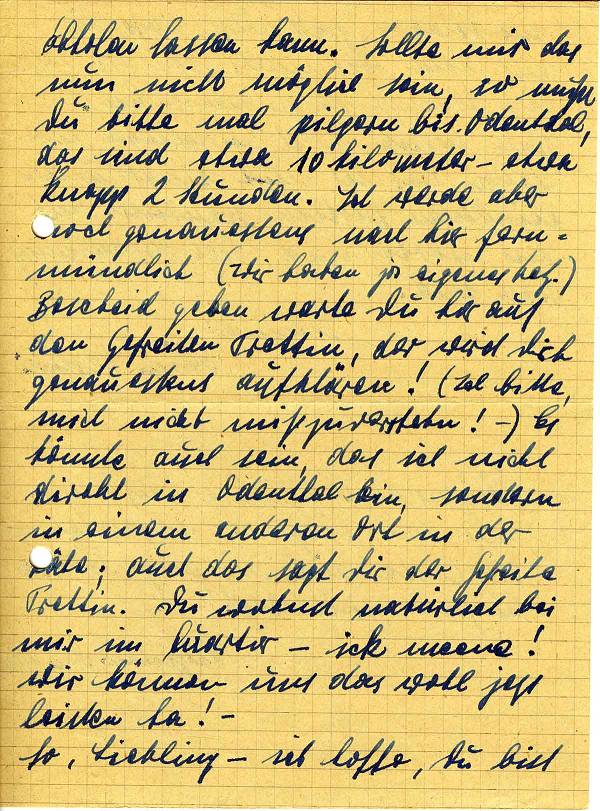 abholen lassen kann. Sollte mir das
nun nicht möglich sein, so mußt
Du bitte mal pilgern bis Odenthal,
das sind etwa 10 Kilometer – etwa
knapp 2 Stunden. Ich werde aber
noch genauestens nach hier fern=
mündlich (wir haben ja eigenes)
Bescheid geben warte Du hier auf
den Gefreiten Trettin, der wird Dich
genauestens aufklären! (Ich bitte,
mich nicht mißzuverstehn! –) Es
könnte auch sein, das ich nicht
direkt in Odenthal bin, sondern
in einem anderen Ort in der
Nähe; auch das sagt Dir der Gefreite
Trettin. Du wohnst natürlich bei
mir im Quartier – ick meene!
Wir können uns das wohl jetzt
leisten ha! –
So, Liebling – ich hoffe, Du bist